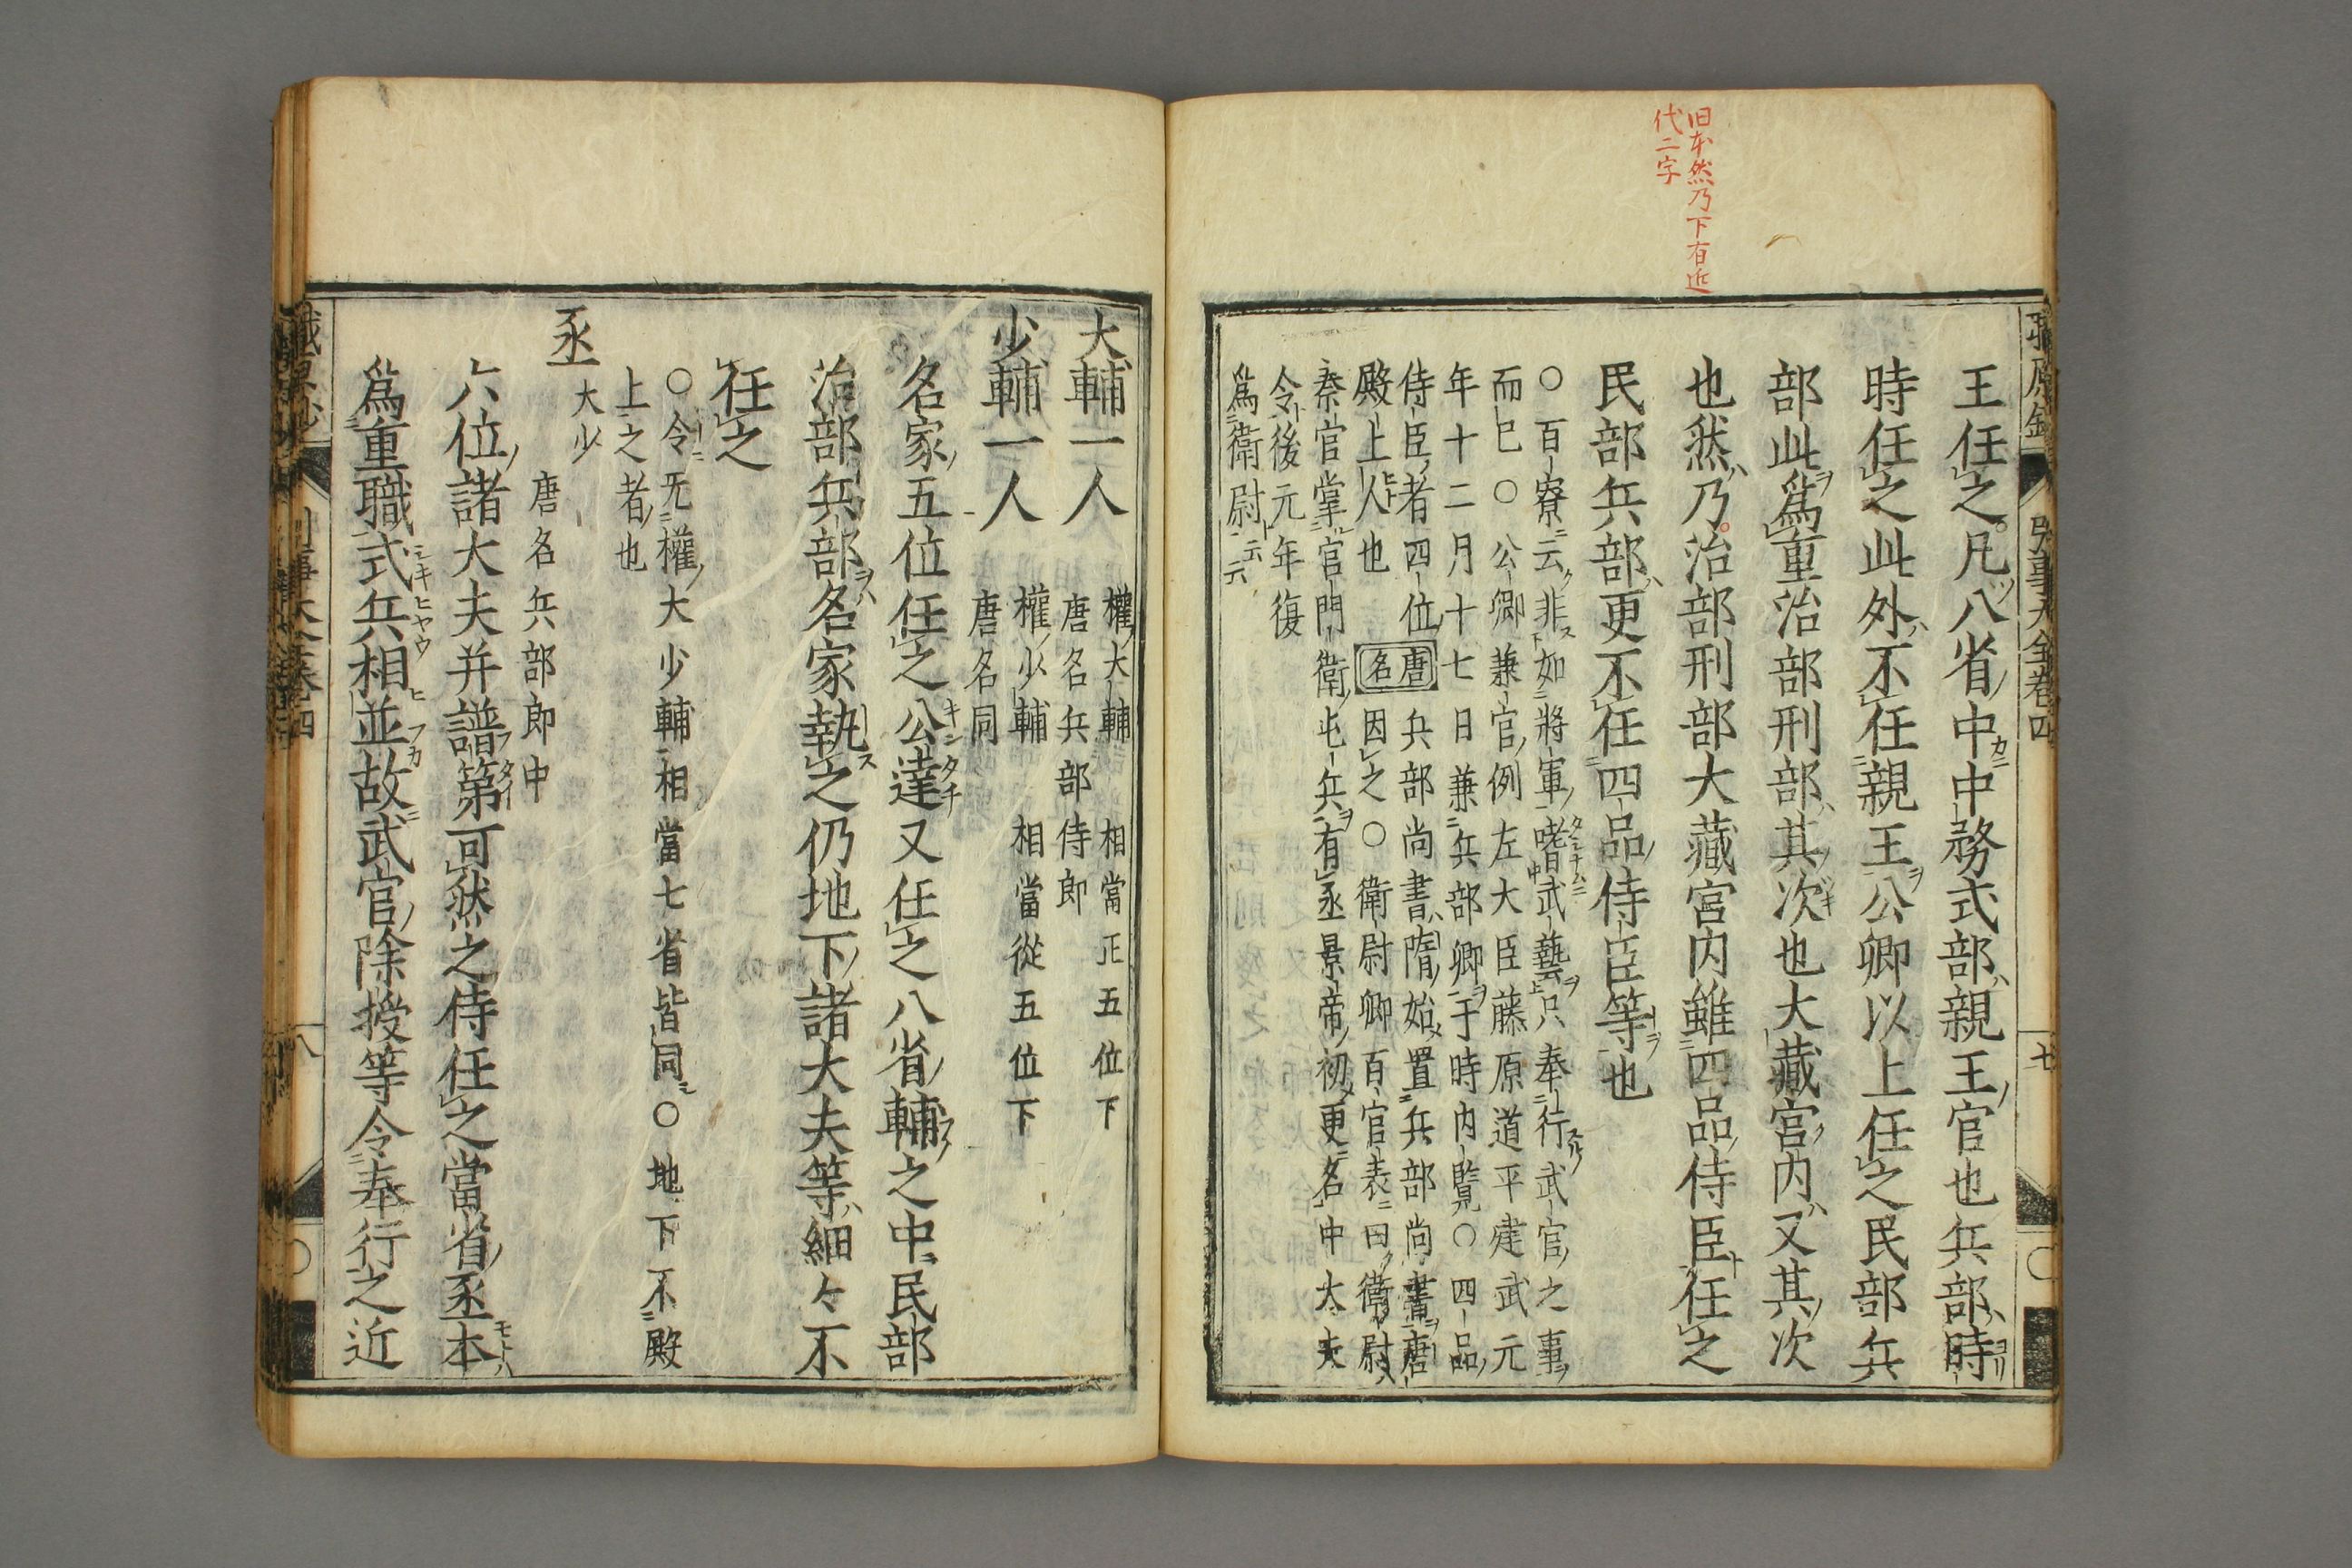 旧本然乃下有近
代二字
王任之凡八省中中務式部親王官也兵部時
時任之此外不任親王公卿以上任之民部兵
部此爲重治部刑部其次也大藏宮内又其次
也然乃治部刑部大藏宮内雖四品侍臣任之
民部兵部更不任四品侍臣等也
〇百寮云非如將軍嗜武藝只奉行武官之事
而已〇公卿兼官例左大臣藤原道平建武元
年十二月十七日兼兵部卿于時内覽〇四品
侍臣者四位
殿上人也
唐名
兵部尚書隋始置兵部尚書唐
因之〇衛尉卿百官表曰衛尉
秦官掌官門衛屯兵有丞景帝初更名中大夫
令後元年復
爲衛尉云云
大輔一人
權大輔 相當正五位下
唐名兵部侍郎
少輔一人
權少輔 相當從五位下
唐名同
名家五位任之公達又任之八省輔之中民部
治部兵部名家執之仍地下諸大夫等細々不
任之
〇令无權大少輔相當七省皆同〇地下不殿
上之者也
丞
大少
唐名兵部郎中
六位諸大夫并譜第可然之侍任之當省丞本
爲重職式兵相並故武官除授等令奉行之近